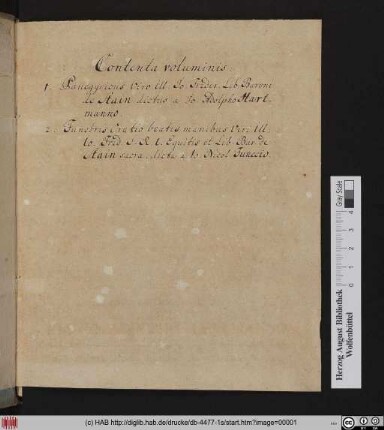 Contenta voluminis
1. Panegyricus Viro Ill. Jo. Frider. Lib. Baroni
de Hain dictus a Jo. Adolpho Hart-
manno
2. Funebris Oratio beatis manibus Viri Ill.
Jo. Frid. S. R. I. Equitis et Lib. Bar. de
Hain sacra, dicta a Jo. Nicol. Funccio.
Gray Scale
4
3
2
1
0
Herzog August Bibliothek
Wolfenbüttel
(c) HAB http://diglib.hab.de/drucke/db-4477-1s/start.htm?image=00001